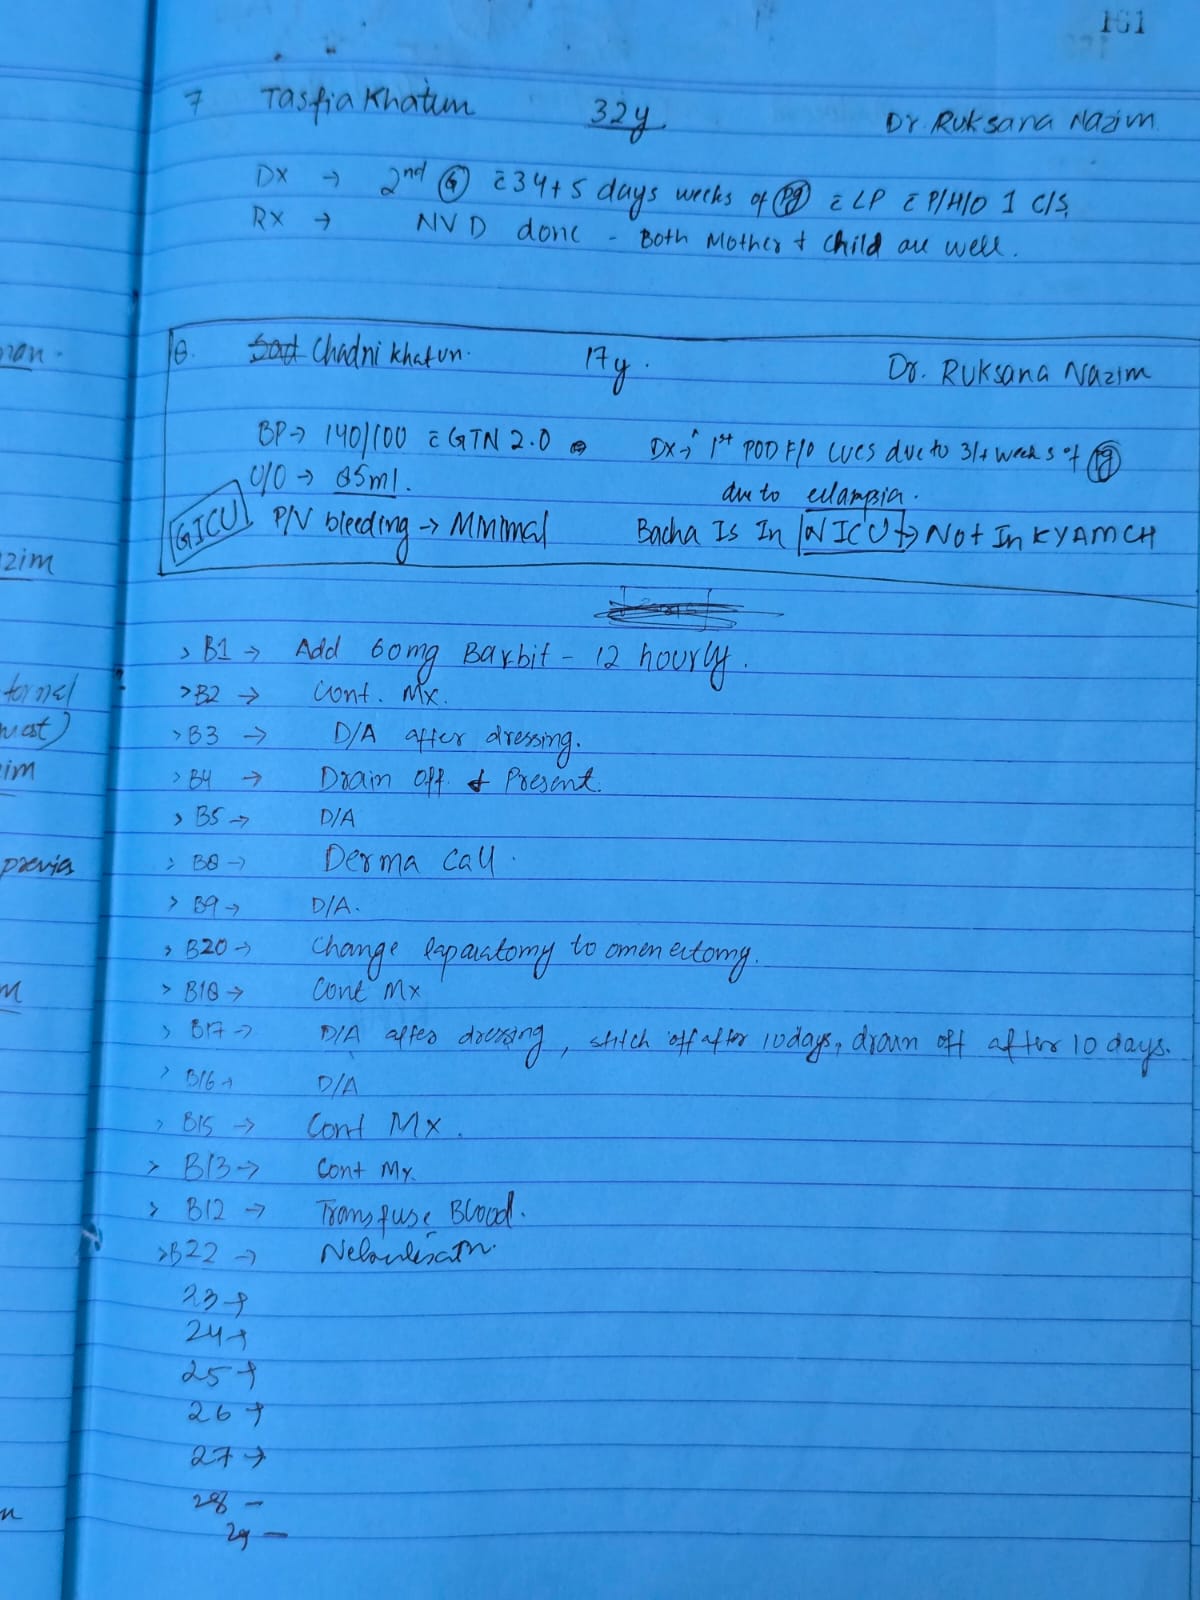 161
7 Tasfia Khatun 32y Dr. Ruksana Nazim
Dx → 2nd G c̄ 34+5 days weeks of Pg c̄ LP c̄ P/H/O 1 C/S,
Rx → NVD done - Both Mother & Child are well.
8. Chadni khatun. 17y. Dr. Ruksana Nazim
BP → 140/100 c̄ GTN 2.0 Dx → 1st POD F/O LUCS due to 31+ weeks of Pg
U/O → 85ml. due to eclampsia.
GICU P/V bleeding → Minimal Bacha Is In NICU → Not In KYAMCH
> B1 → Add 60mg Barbit - 12 hourly.
> B2 → Cont. Mx.
> B3 → D/A after dressing.
> B4 → Drain off & Present.
> B5 → D/A
> B8 → Derma Call.
> B9 → D/A.
> B20 → Change laparatomy to omenectomy.
> B18 → Cont Mx
> B17 → D/A after dressing, stitch off after 10 days, drain off after 10 days.
> B16 → D/A
> B15 → Cont Mx.
> B13 → Cont Mx.
> B12 → Transfuse Blood.
> B22 →
23 →
24 →
25 →
26 →
27 →
28 -
29 -
nan.
zim
ternal
uest)
im
previa
m